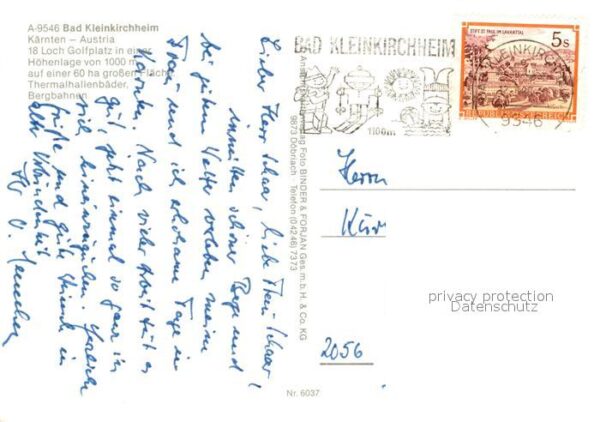 A-9546 Bad Kleinkirchheim
Kärnten – Austria
18 Loch Golfplatz in einer
Höhenlage von 1000 m
auf einer 60 ha großen Fläche
Thermalhallenbäder,
Bergbahnen
Lieber Herr Schaar, liebe Frau Schaar,
inmitten schöner Berge und
bei gutem Wetter verleben meine
Frau und ich erholsame Tage in
Kärnten. Nach vieler Arbeit tut es
gut, jetzt einmal so ganz in
Grüße und gute Wünsche in
alter Verbundenheit
Ihr
Foto BINDER & FORJAN Ges. m. b. H. & Co. KG
9873 Döbriach · Telefon (04246) 7373
Nr. 6037
BAD KLEINKIRCHHEIM
1100m
KLEINKIRCH
9546
STIFT ST. PAUL IM LAVANTTAL
5 S
REPUBLIK ÖSTERREICH
Herrn
Kur
2056
privacy protection
Datenschutz